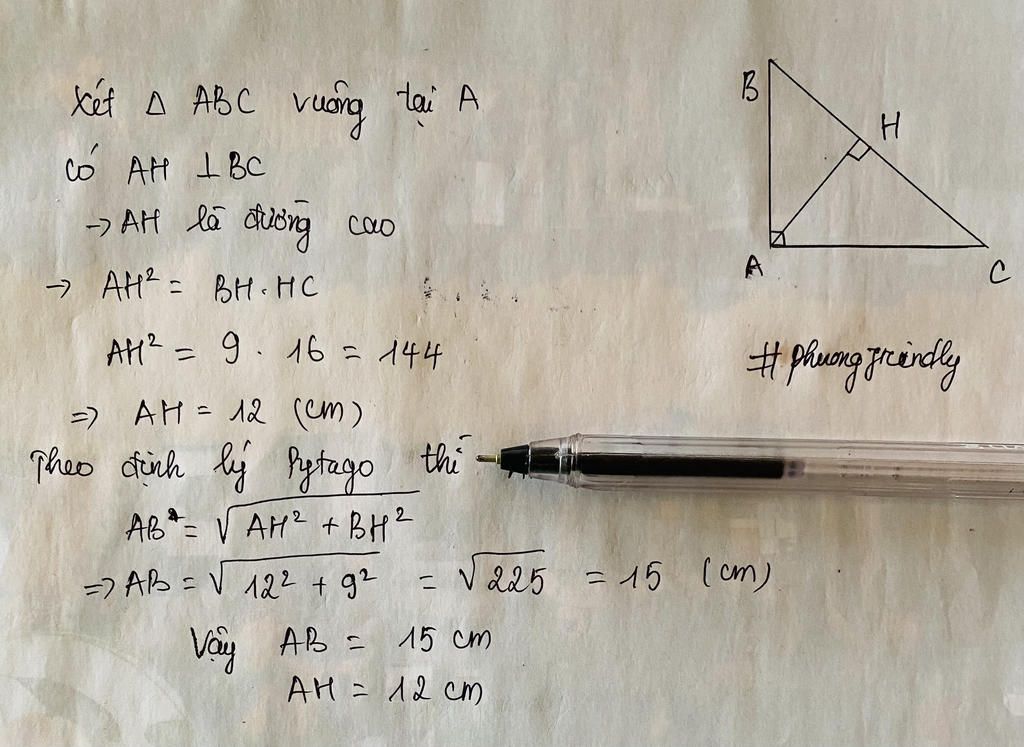 Xét Δ ABC vuông tại A
có AH ⊥ BC
→ AH là đường cao
→ AH² = BH . HC
AH² = 9 . 16 = 144
=> AH = 12 (cm)
Theo định lý Pytago thì
AB = √AH² + BH²
=> AB = √12² + 9² = √225 = 15 (cm)
Vậy AB = 15 cm
AH = 12 cm
B
H
A
C
#phuongfriendly